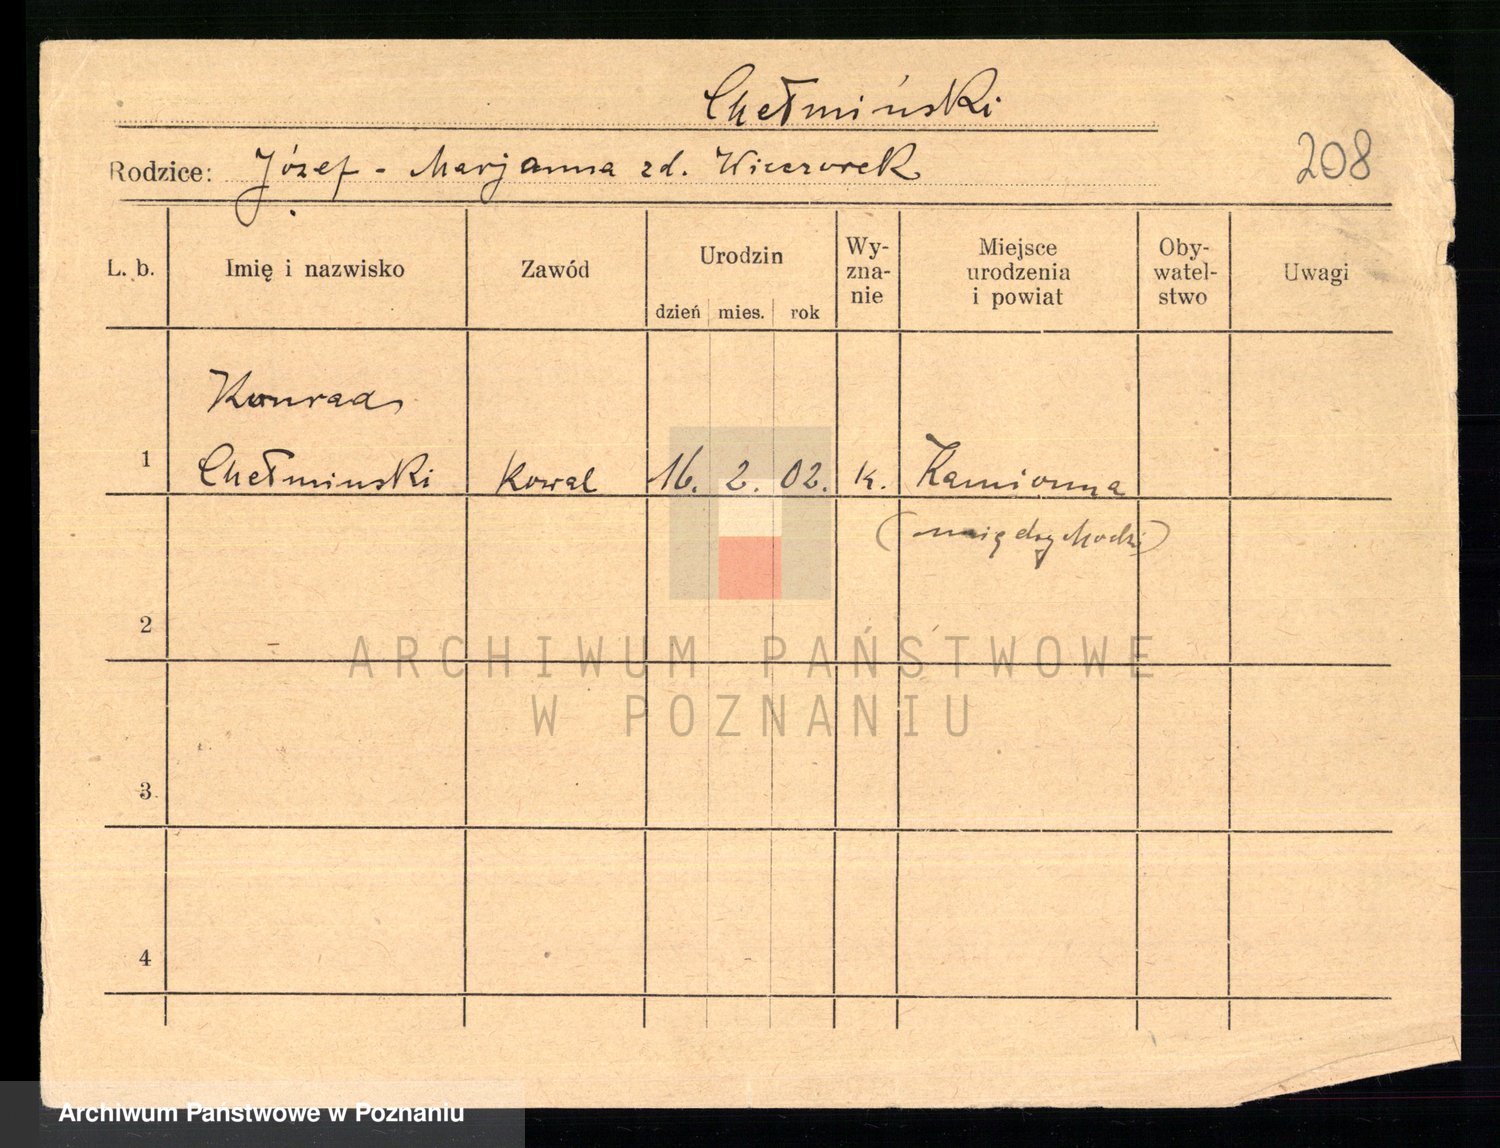 Chełmiński
Rodzice: Józef - Marjanna zd. Wieczorek
208
L. b. Imię i nazwisko Zawód Urodzin dzień mies. rok Wy-zna-nie Miejsce urodzenia i powiat Oby-watel-stwo Uwagi
Konrad
1 Chełminski Kowal 16. 2. 02. k. Kamionna
(międzychodzki)
2
ARCHIWUM PAŃSTWOWE
W POZNANIU
3
4
Archiwum Państwowe w Poznaniu